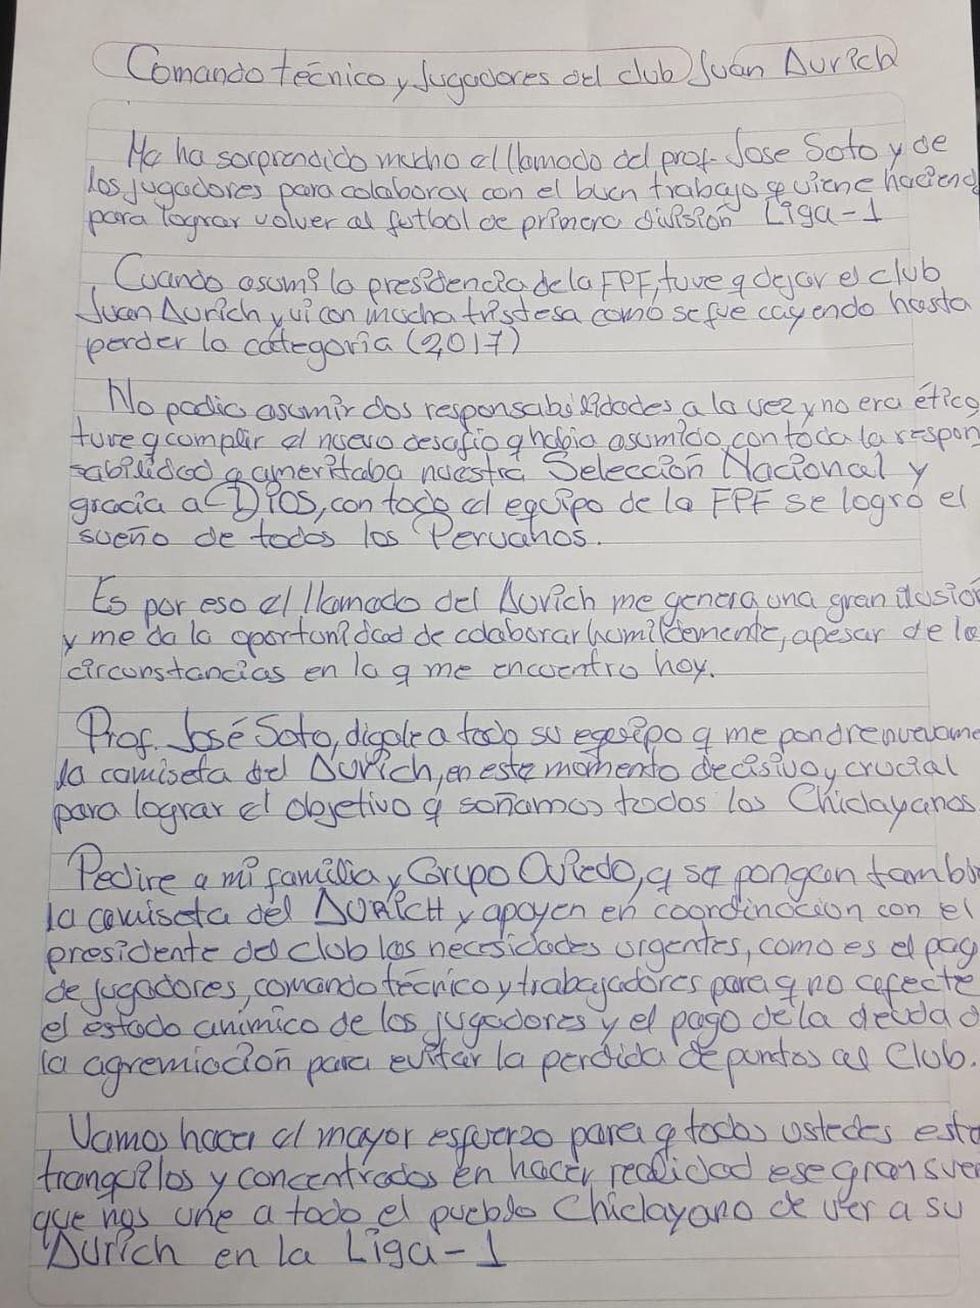 Comando técnico y Jugadores del club Juan Aurich
Me ha sorprendido mucho el llamado del prof. Jose Soto y de
los jugadores para colaborar con el buen trabajo q viene haciend
para lograr volver al futbol de primera división Liga-1
Cuando asumi la presidencia de la FPF, tuve q dejar el club
Juan Aurich y vi con mucha tristesa como se fue cayendo hasta
perder la categoria (2,017)
No podia asumir dos responsabilidades a la vez y no era ético
tuve q complir el nuevo desafio q habia asumido, con toda la respon
sabilidad q ameritaba nuestra Selección Nacional y
gracia a DIOS, con todo el equipo de la FPF se logró el
sueño de todos los Peruanos.
Es por eso el llamado del Aurich me genera una gran ilusion
y me da la oportunidad de colaborar humildemente, apesar de la
circunstancias en la q me encuentro hoy.
Prof. José Soto, digale a todo su equipo q me pondre nuevame
la camiseta del Aurich, en este momento decisivo y crucial
para lograr el objetivo q soñamos todos los Chiclayanos
Pedire a mi familia y Grupo Oviedo, q se pongan tambi
la camiseta del AURICH y apoyen en coordinacion con el
presidente del Club las necesidades urgentes, como es el pag
de jugadores, comando técnico y trabajadores para q no afecte
el estado animico de los jugadores y el pago de la deuda a
la agremiación para evitar la perdida de puntos al Club.
Vamos hacer el mayor esfuerzo para q todos ustedes esta
tranquilos y concentrados en hacer realidad ese gran sue
que nos une a todo el pueblo Chiclayano de ver a su
Aurich en la Liga-1